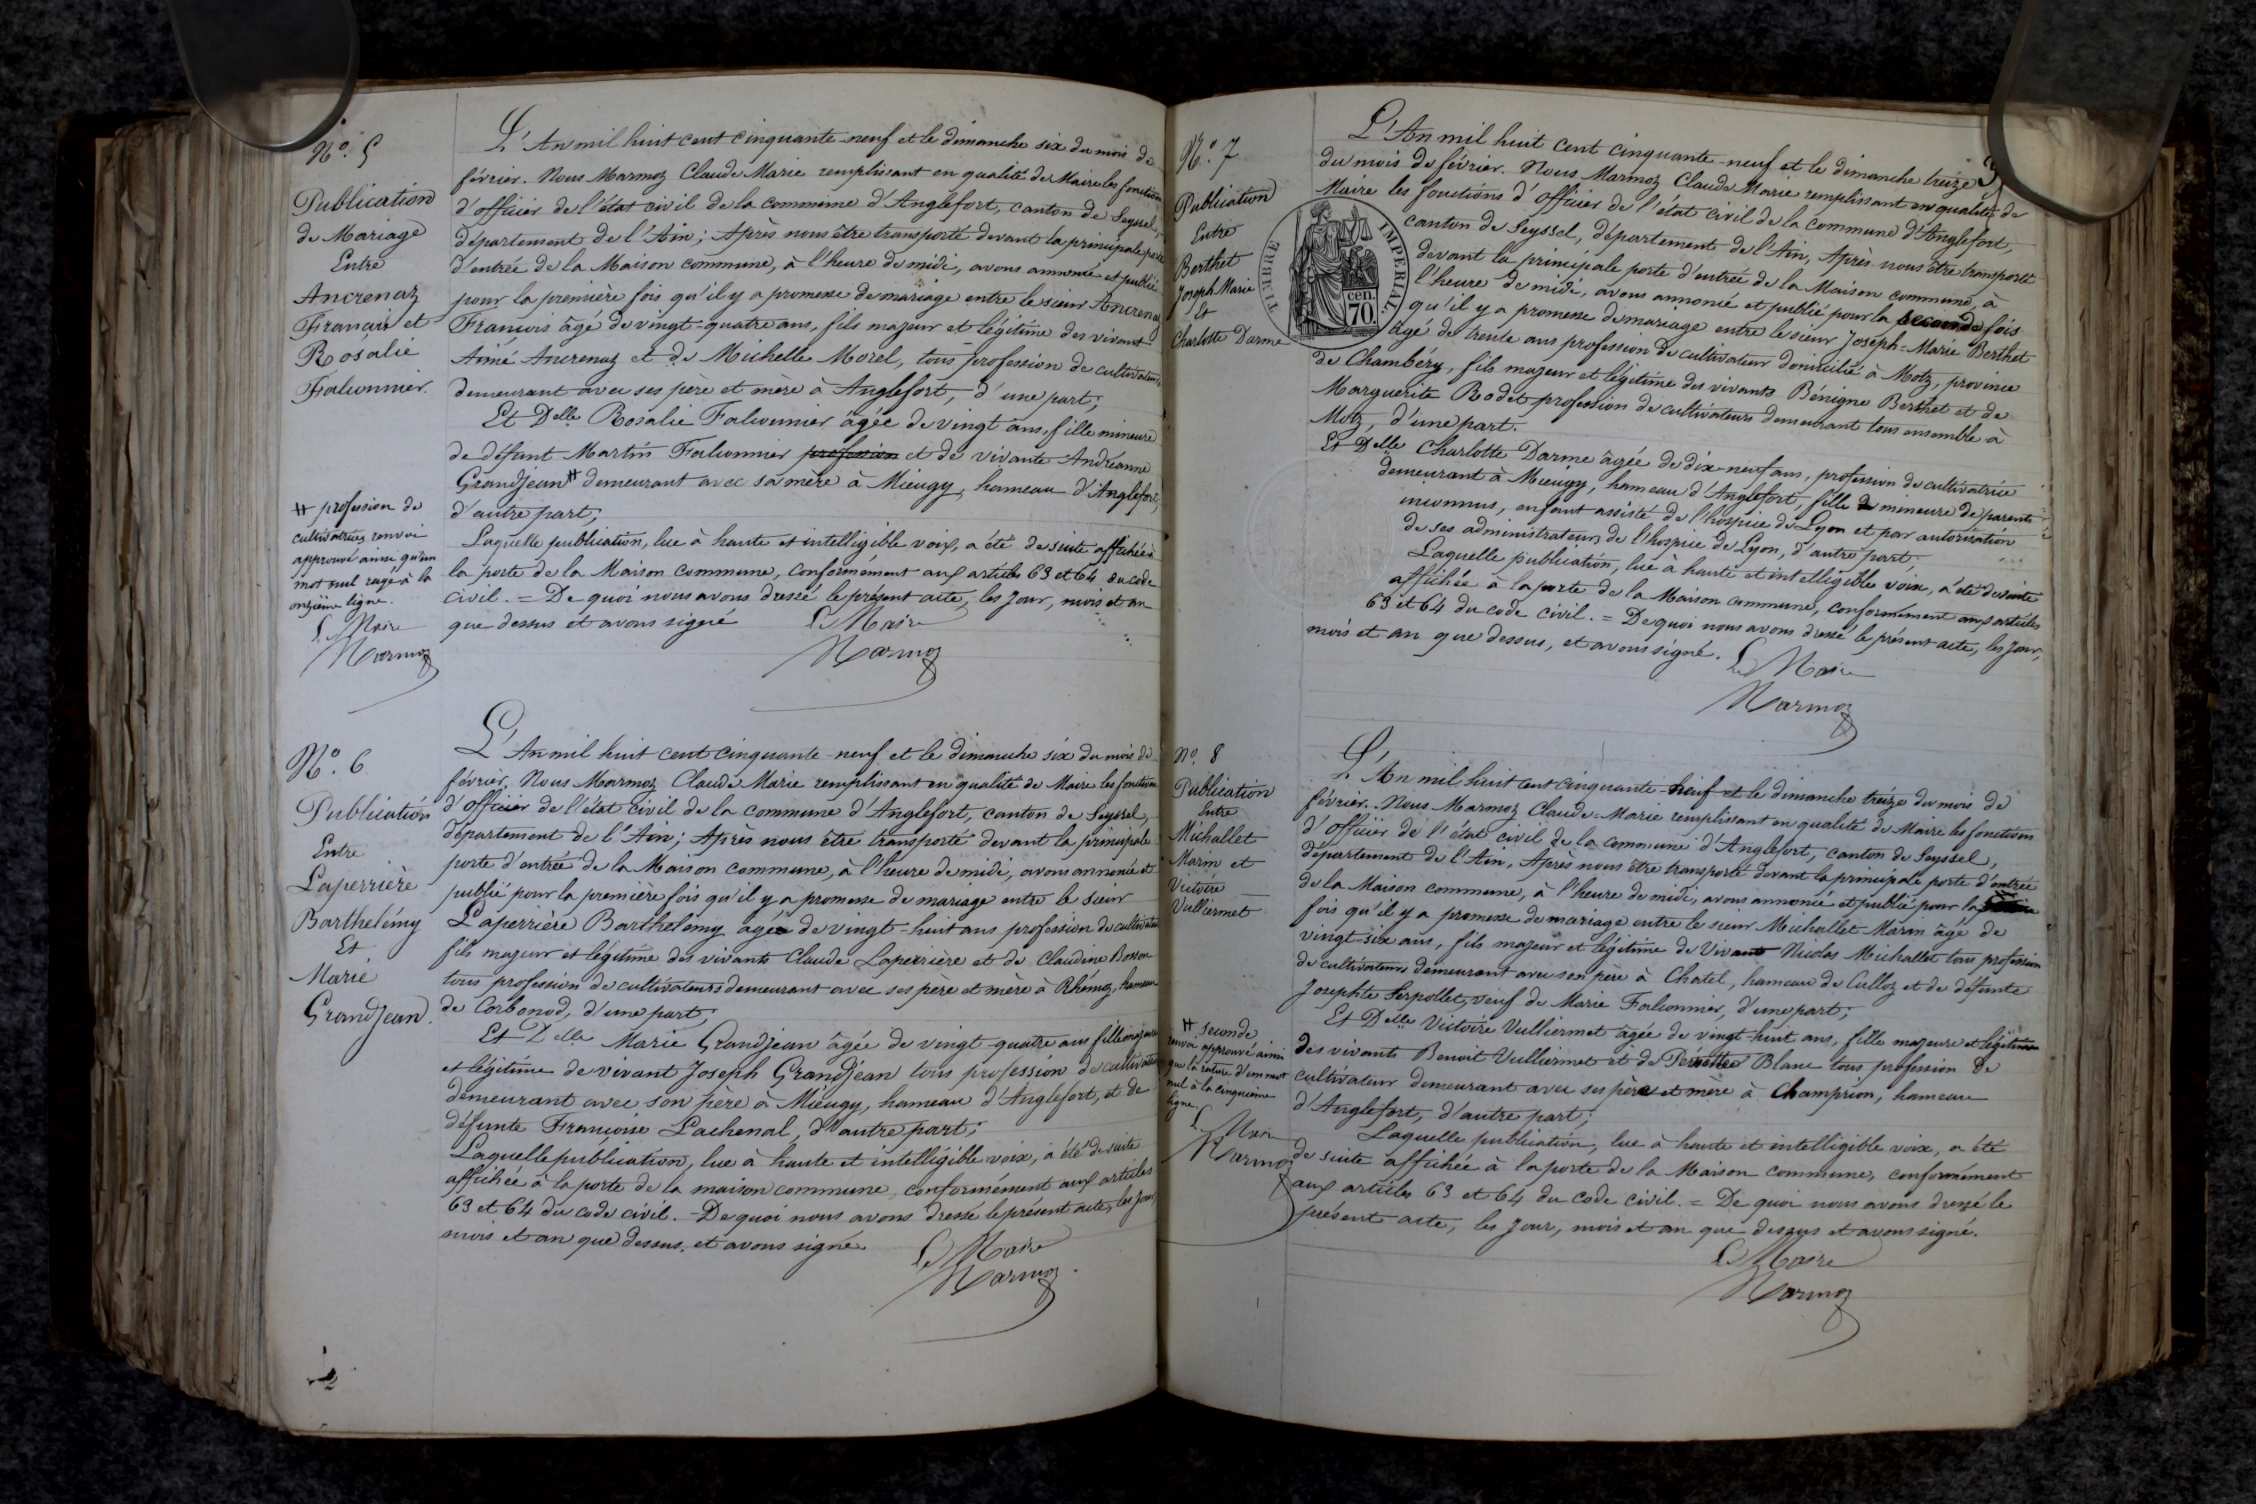 N.º 5
Publication
de Mariage
Entre
Ancrenaz
Français et
Rosalie
Falconnier.
L'An mil huit cent cinquante-neuf et le dimanche six du mois de
février. Nous Marmoz Claude Marie remplissant en qualité de Maire les fonctions
d'officier de l'état civil de la commune d'Anglefort, canton de Seyssel,
département de l'Ain; Après nous être transporté devant la principale porte
d'entrée de la Maison commune, à l'heure de midi, avons annoncé et publié
pour la première fois qu'il y a promesse de mariage entre le sieur Ancrenaz
François âgé de vingt-quatre ans, fils majeur et légitime des vivants
Aimé Ancrenaz et de Michelle Morel, tous profession de cultivateurs
demeurant avec ses père et mère à Anglefort, d'une part;
Et Delle Rosalie Falconnier âgée de vingt ans, fille mineure
de défunt Martin Falconnier profession et de vivante Andréanne
Grandjean # demeurant avec sa mère à Mieugy, hameau d'Anglefort,
d'autre part;
Laquelle publication, lue à haute et intelligible voix, a été de suite affichée à
la porte de la Maison commune, conformément aux articles 63 et 64 du code
civil. = De quoi nous avons dressé le présent acte, les jour, mois et an
que dessus et avons signé
Le Maire
Marmoz
# profession de
cultivatrice renvoi
approuvé ainsi qu'un
mot nul rayé à la
onzième ligne.
Le Maire
Marmoz
N.º 6
Publication
Entre
Laperrière
Barthelémy
Et
Marie
Grandjean.
L'An mil huit cent cinquante-neuf et le dimanche six du mois de
février. Nous Marmoz Claude Marie remplissant en qualité de Maire les fonctions
d'officier de l'état civil de la commune d'Anglefort, canton de Seyssel,
département de l'Ain; Après nous être transporté devant la principale
porte d'entrée de la Maison commune, à l'heure de midi, avons annoncé et
publié pour la première fois qu'il y a promesse de mariage entre le sieur
Laperrière Barthelémy âgé de vingt-huit ans profession de cultivateur
fils majeur et légitime des vivants Claude Laperrière et de Claudine Bosson
tous profession de cultivateurs demeurant avec ses père et mère à Rhémoz, hameau
de Corbonod, d'une part;
Et Delle Marie Grandjean âgée de vingt-quatre ans fille majeure
et légitime de vivant Joseph Grandjean tous profession de cultivateurs
demeurant avec son père à Mieugy, hameau d'Anglefort, et de
défunte Françoise Lachenal, d'autre part;
Laquelle publication, lue à haute et intelligible voix, a été de suite
affichée à la porte de la maison commune, conformément aux articles
63 et 64 du code civil. = De quoi nous avons dressé le présent acte, les jour,
mois et an que dessus, et avons signé.
Le Maire
Marmoz
N.º 7
Publication
Entre
Berthet
Joseph Marie
Et
Charlotte Darme
TIMBRE IMPERIAL.
cen.
70.
L'An mil huit cent cinquante-neuf et le dimanche treize
du mois de février. Nous Marmoz Claude Marie remplissant en qualité de
Maire les fonctions d'officier de l'état civil de la commune d'Anglefort,
canton de Seyssel, département de l'Ain, Après nous être transporté
devant la principale porte d'entrée de la Maison commune, à
l'heure de midi, avons annoncé et publié pour la seconde fois
qu'il y a promesse de mariage entre le sieur Joseph-Marie Berthet
âgé de trente ans profession de cultivateur domicilié à Motz, province
de Chambéry, fils majeur et légitime des vivants Bénigne Berthet et de
Marguerite Rodet profession de cultivateurs demeurant tous ensemble à
Motz, d'une part.
Et Delle Charlotte Darme âgée de dix-neuf ans, profession de cultivatrice
demeurant à Mieugy, hameau d'Anglefort, fille mineure de parents
inconnus, enfant assisté de l'hospice de Lyon et par autorisation
de ses administrateurs de l'hospice de Lyon, d'autre part;
Laquelle publication, lue à haute et intelligible voix, a été de suite
affichée à la porte de la Maison commune, conformément aux articles
63 et 64 du code civil. = De quoi nous avons dressé le présent acte, les jour,
mois et an que dessus, et avons signé.
Le Maire
Marmoz
Nº. 8
Publication
Entre
Michallet
Marin et
Victoire
Vulliermet
L'An mil huit cent cinquante-neuf et le dimanche treize du mois de
février. Nous Marmoz Claude-Marie remplissant en qualité de Maire les fonctions
d'officier de l'état civil de la commune d'Anglefort, canton de Seyssel,
département de l'Ain, Après nous être transporté devant la principale porte d'entrée
de la Maison commune, à l'heure de midi, avons annoncé et publié pour la
fois qu'il y a promesse de mariage entre le sieur Michallet Marin âgé de
vingt-six ans, fils majeur et légitime de vivant Nicolas Michallet tous profession
de cultivateurs demeurant avec son père à Chatel, hameau de Culloz et de défunte
Josephte Serpollet, veuf de Marie Falconnier, d'une part;
Et Delle Victoire Vulliermet âgée de vingt-huit ans, fille majeure et légitime
des vivants Benoit Vulliermet et de Pernette Blanc tous profession de
cultivateur demeurant avec ses père et mère à Champrion, hameau
d'Anglefort, d'autre part;
Laquelle publication, lue à haute et intelligible voix, a été
de suite affichée à la porte de la Maison commune, conformément
aux articles 63 et 64 du code civil. = De quoi nous avons dressé le
présent acte, les jour, mois et an que dessus et avons signé.
Le Maire
Marmoz
# seconde
renvoi approuvé ainsi
que la rature d'un mot
nul à la cinquième
ligne
Le Maire
Marmoz